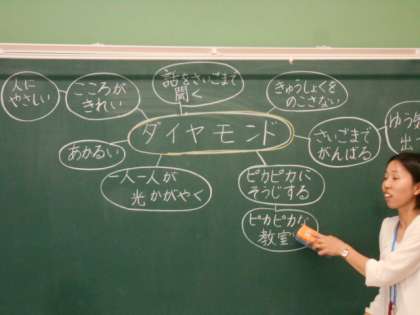 人に
やさしい
こころが
きれい
話をさいごまで
聞く
きゅうしょくを
のこさない
ダイヤモンド
さいごまで
がんばる
ゆう
出
あかるい
一人一人が
光かがやく
ピカピカに
そうじする
ピカピカな
教室